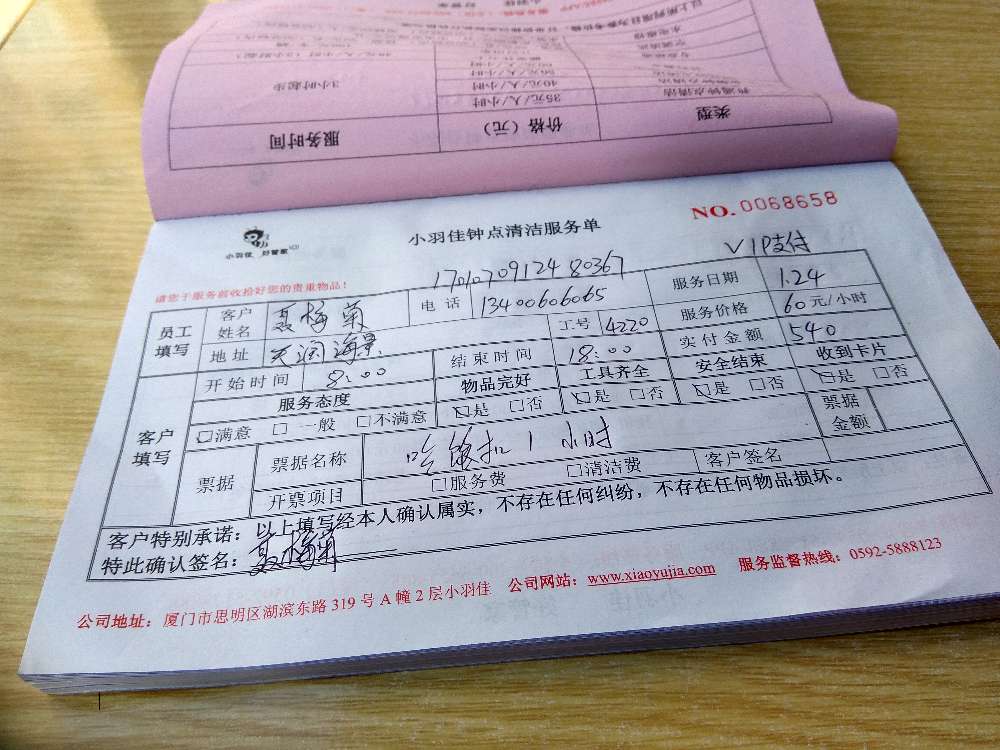 服务时间 价格（元） 类型
3小时起步 35元/人/小时
40元/人/小时
50元/人/小时
小羽佳 好管家
NO.0068658
小羽佳钟点清洁服务单
请您于服务前收拾好您的贵重物品！
17010709124 80367
VIP支付
员工填写 客户姓名 聂梅菊 电话 13400606065 服务日期 1.24
地址 天润海景 工号 4220 服务价格 60元/小时
开始时间 8:00 结束时间 18:00 实付金额 540
客户填写 服务态度 物品完好 工具齐全 安全结束 收到卡片
□满意 □一般 □不满意 □是 □否 □是 □否 □是 □否 □是 □否
票据 票据名称 吃饭扣1小时 票据金额
开票项目 □服务费 □清洁费 客户签名
客户特别承诺：以上填写经本人确认属实，不存在任何纠纷，不存在任何物品损坏。
特此确认签名：聂梅菊
公司地址：厦门市思明区湖滨东路319号A幢2层小羽佳 公司网站：www.xiaoyujia.com 服务监督热线：0592-5888123